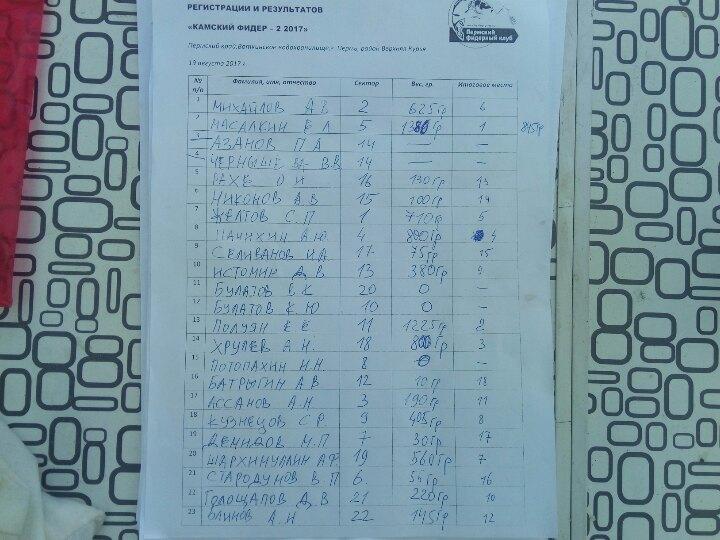 РЕГИСТРАЦИИ И РЕЗУЛЬТАТОВ
«КАМСКИЙ ФИДЕР – 2 2017»
Пермский фидерный клуб
Пермский край, Воткинское водохранилище г. Пермь, район Верхняя Курья
19 августа 2017 г.
№ п/п Фамилия, имя, отчество Сектор Вес, гр. Итоговое место
1 МИХАЙЛОВ А В 2 625гр 6
2 МАСАЛКИН Е Л 5 1380гр 1 845гр
3 АЗАНОВ П А 14 — —
4 ЧЕРНЫШЕ В.В 14 — —
5 РАХЕ О И 16 130гр 13
6 НИКОНОВ А.В 15 100гр 14
7 ЖЕЛТОВ С.П 1 710гр 5
8 А.Ю. 4 800гр 4
9 СЕЛИВАНОВ И.А. 17 75гр 15
10 ИСТОМИН Д В 13 380гр 9
11 БУЛАТОВ В.К 20 0 —
12 БУЛАТОВ К.Ю 10 0 —
13 ПОЛУЯН Е Е 11 1225гр 2
14 ХРУЛЕВ А.Н. 18 800гр 3
15 ПОТОПАХИН И.Н. 8 0 —
16 БАТРЫГИН А В 12 10гр 18
17 АССАНОВ А.Н 3 190гр 11
18 КУЗНЕЦОВ С.Р. 9 405гр 8
19 ДЕМИДОВ М.П 7 30гр 17
20 ШАРХИНУЛЛИН А.Ф 19 560гр 7
21 СТАРОДУМОВ В.П 6. 54гр 16
22 ГОЛОЩАПОВ Д.В 21 220гр 10
23 БЛИНОВ А.Н 22 145гр 12